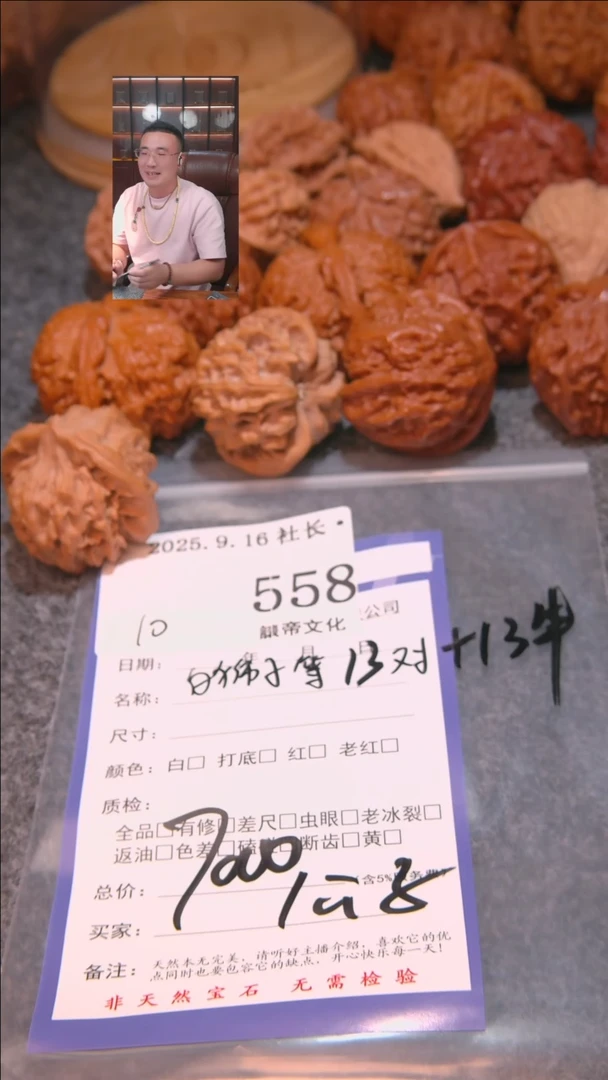 2025.9.16 社长·
558
公司
10
龍帝文化
日期： 年 月 日
名称： 白狮子等13对+13单
尺寸：
颜色：白□ 打底□ 红□ 老红□
质检：
全品□有修□差尺□虫眼□老冰裂□
返油□色差□磕碰□断齿□黄□
总价： 7000 （含5%服务费）
买家：
备注：天然本无完美，请听好主播介绍，喜欢它的优
点同时也要包容它的缺点，开心快乐每一天！
非天然宝石 无需检验